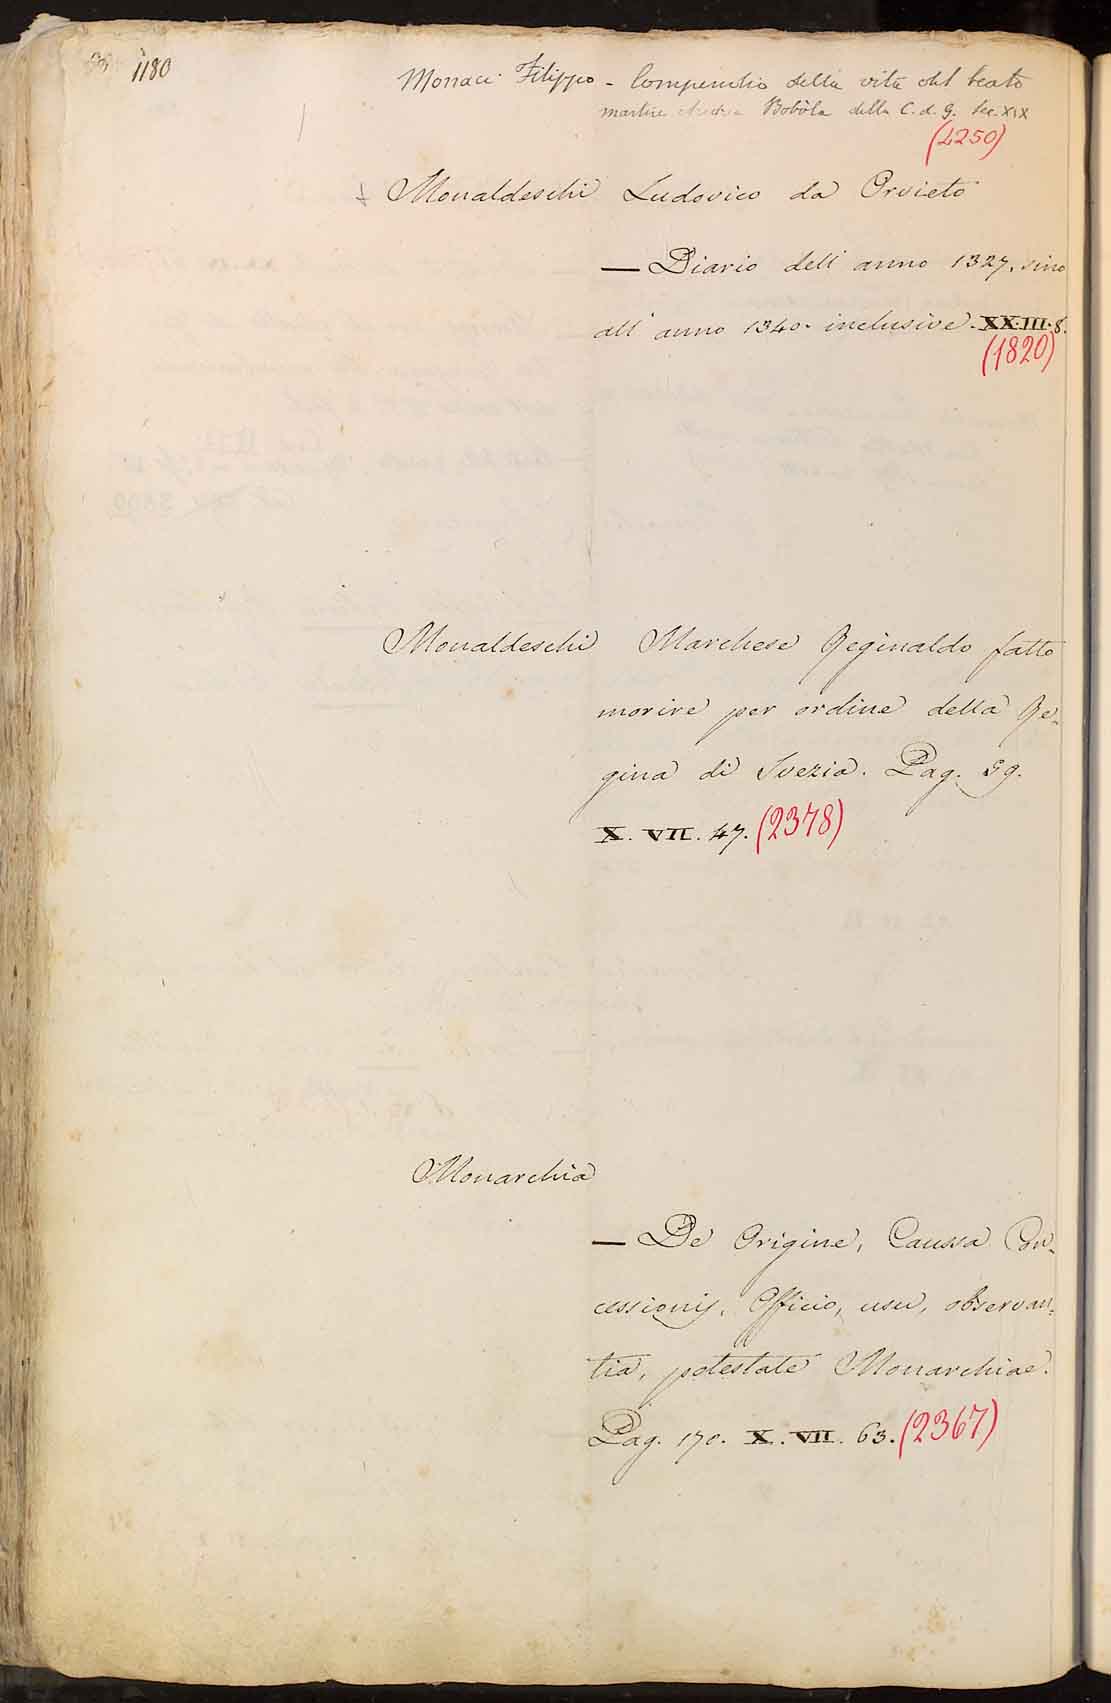 1180
Monaci Filippo - Compendio della vita del beato
martire Andrea Bobòla della C. d. G. sec. XIX
(4250)
Monaldeschi Ludovico da Orvieto
— Diario dell' anno 1327. sino
all' anno 1340. inclusive. XX.III.8.
(1820)
Monaldeschi Marchese Reginaldo fatto
morire per ordine della Re-
gina di Svezia. Pag. 59.
X. VII. 47. (2378)
Monarchia
— De Origine, Caussa Con-
cessionis, Officio, usu, observan-
tia, potestate Monarchiae.
Pag. 170. X. VII. 63. (2367)